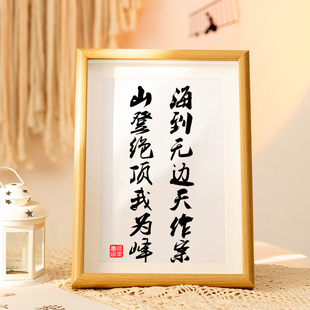 海到无边天作岸
山登绝顶我为峰